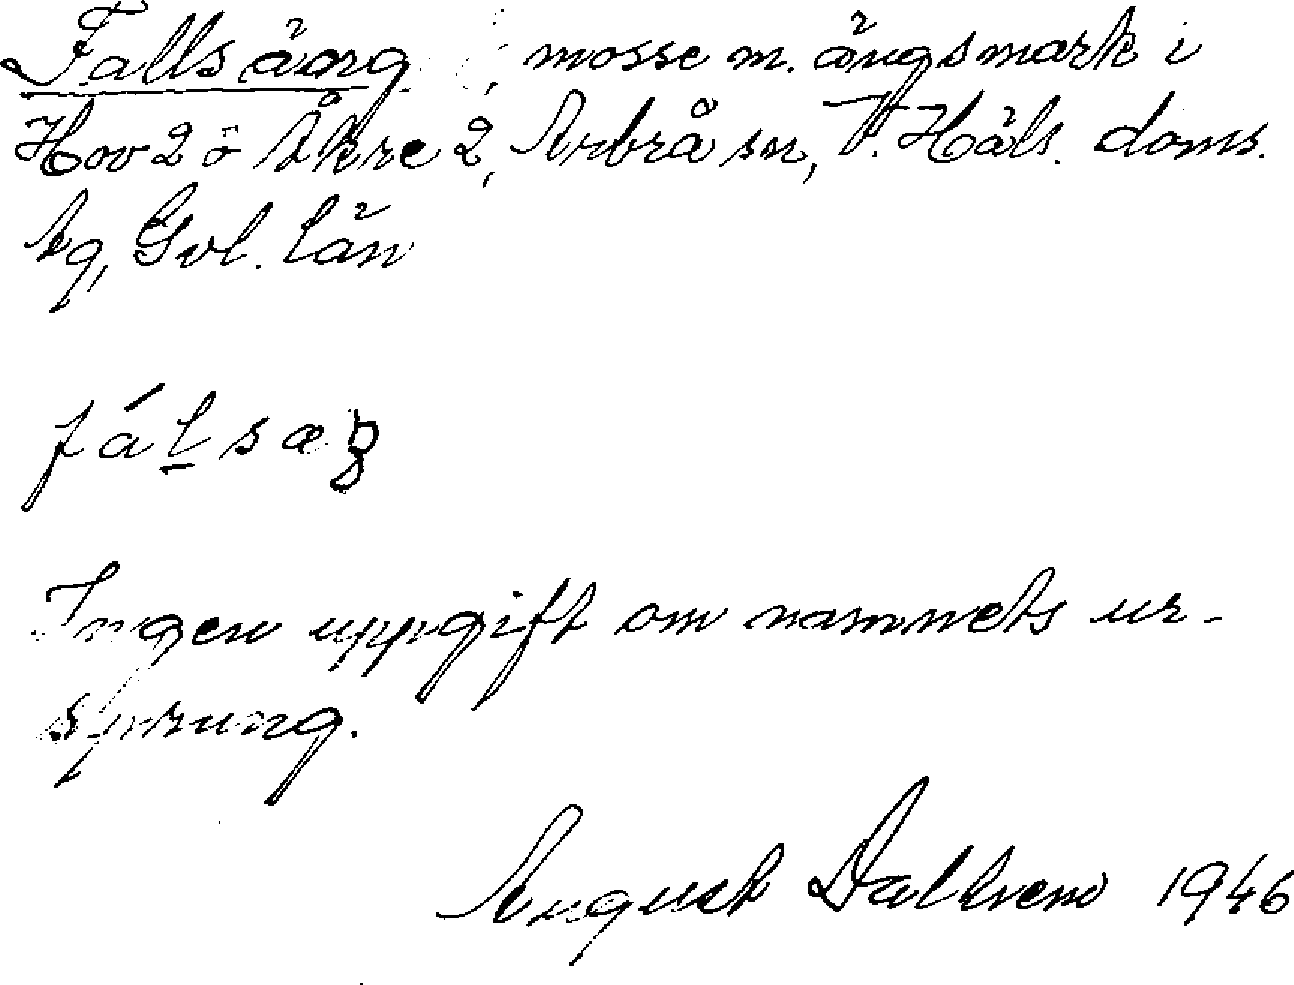 Fallsäng, mosse m. ängsmark i
Hov 2 o Åkre 2, Arbrå sn, V. Häls. doms.
sg, Gvl. län
fálsæŋ
Ingen uppgift om namnets ur-
sprung.
August 1946